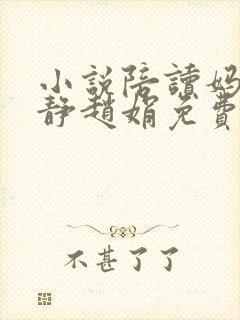 小说陪读妈
静赵娟免费
不甚了了